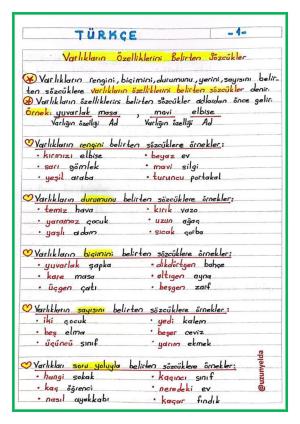 TÜRKÇE -1-
Varlıkların Özelliklerini Belirten Sözcükler
Varlıkların rengini, biçimini, durumunu, yerini, sayısını belir-
ten sözcüklere varlıkların özelliklerini belirten sözcükler denir.
Varlıkların özelliklerini belirten sözcükler adlardan önce gelir.
Örnek: yuvarlak masa, mavi elbise
Varlığın özelliği Ad Varlığın özelliği Ad
Varlıkların rengini belirten sözcüklere örnekler;
• kırmızı elbise • beyaz ev
• sarı gömlek • mavi silgi
• yeşil araba • turuncu portakal
Varlıkların durumunu belirten sözcüklere örnekler;
• temiz hava • kırık vazo
• yaramaz çocuk • uzun ağaç
• yaşlı adam • sıcak çorba
Varlıkların biçimini belirten sözcüklere örnekler;
• yuvarlak şapka • dikdörtgen bahçe
• kare masa • altıgen ayna
• üçgen çatı • beşgen zarf
Varlıkların sayısını belirten sözcüklere örnekler;
• iki çocuk • yedi kalem
• beş elma • beşer ceviz
• üçüncü sınıf • yarım ekmek
Varlıkları soru yoluyla belirten sözcüklere örnekler;
• hangi sokak • kaçıncı sınıf
• kaç öğrenci • neredeki ev
• nasıl ayakkabı • kaçar fındık
@uzunyelda